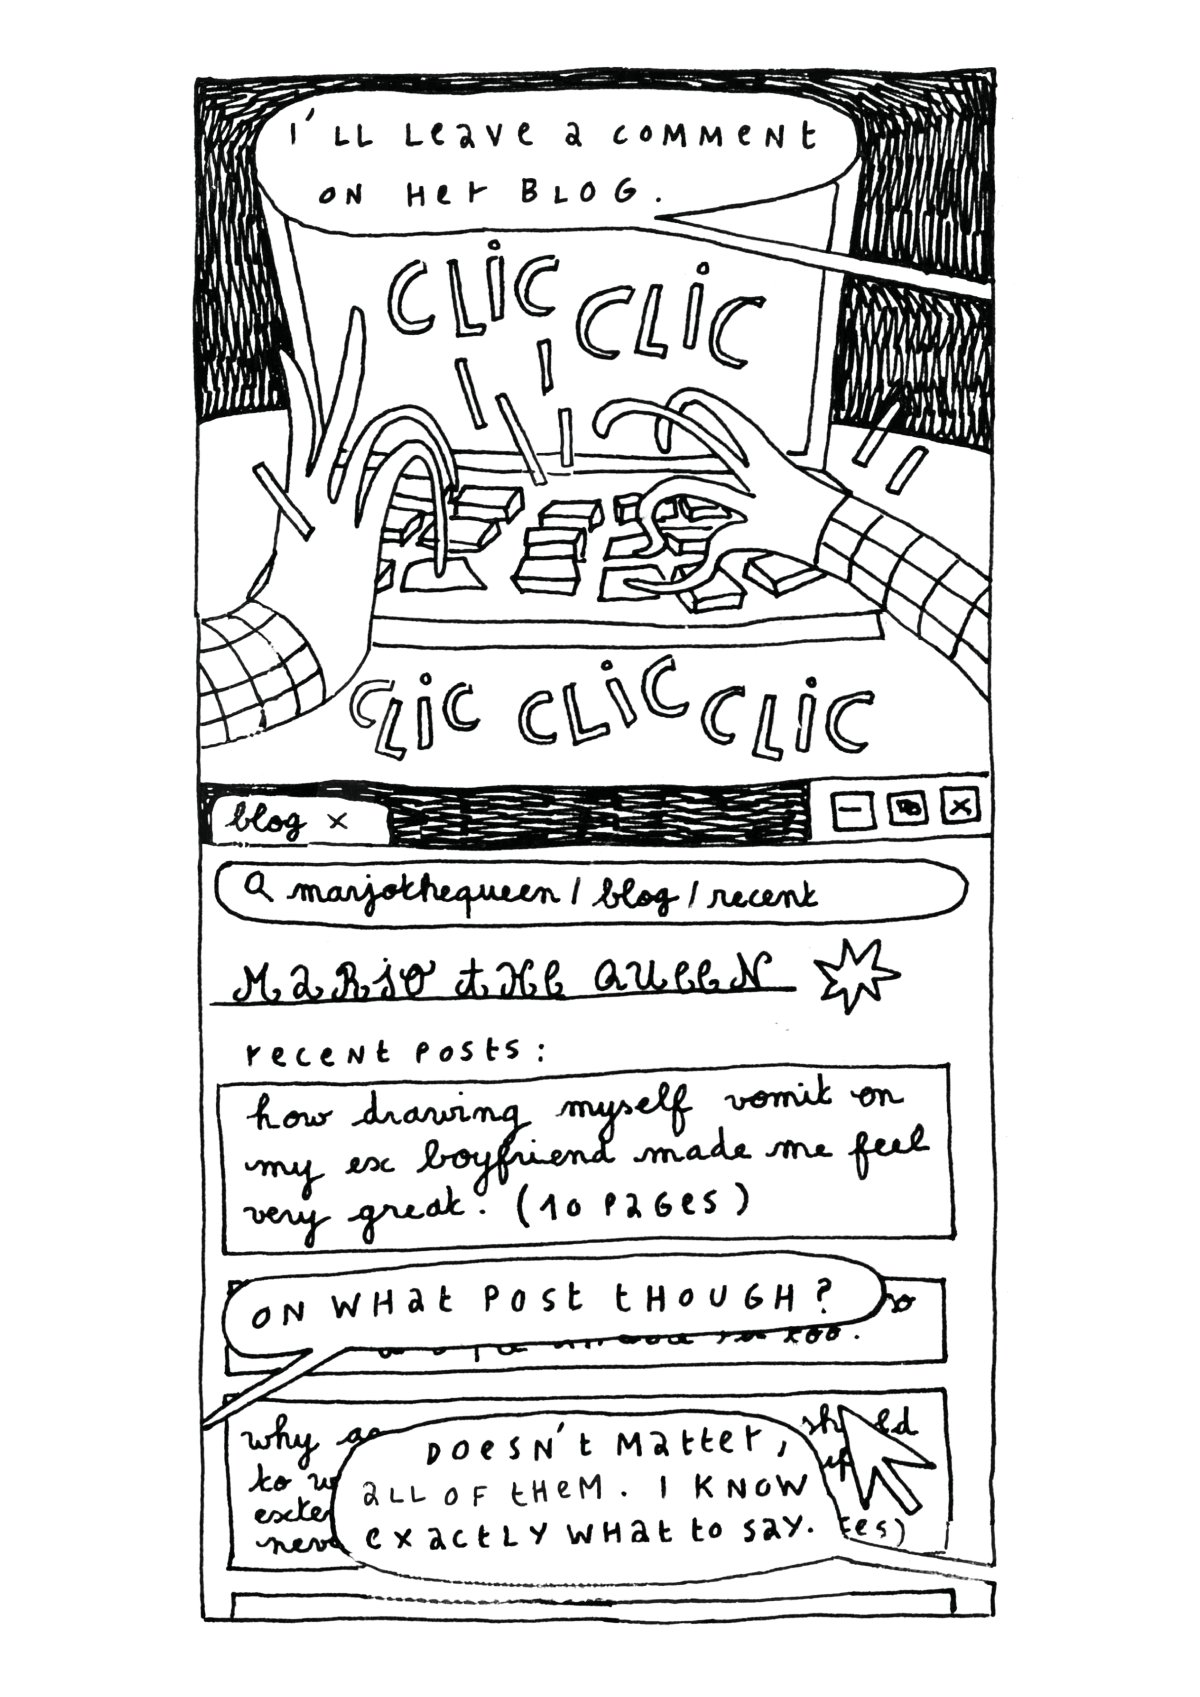 I'LL Leave a comment
on Her BLOG.
CLiC
CLiC
CLiC
CLiC
CLiC
blog x
marjothequeen / blog / recent
MARJO THE QUEEN
recent posts:
how drawing myself vomit on
my ex boyfriend made me feel
very great. (10 pages)
on what post though?
so
too.
why
to
Doesn't matter,
all of them. I know
exactly what to say.